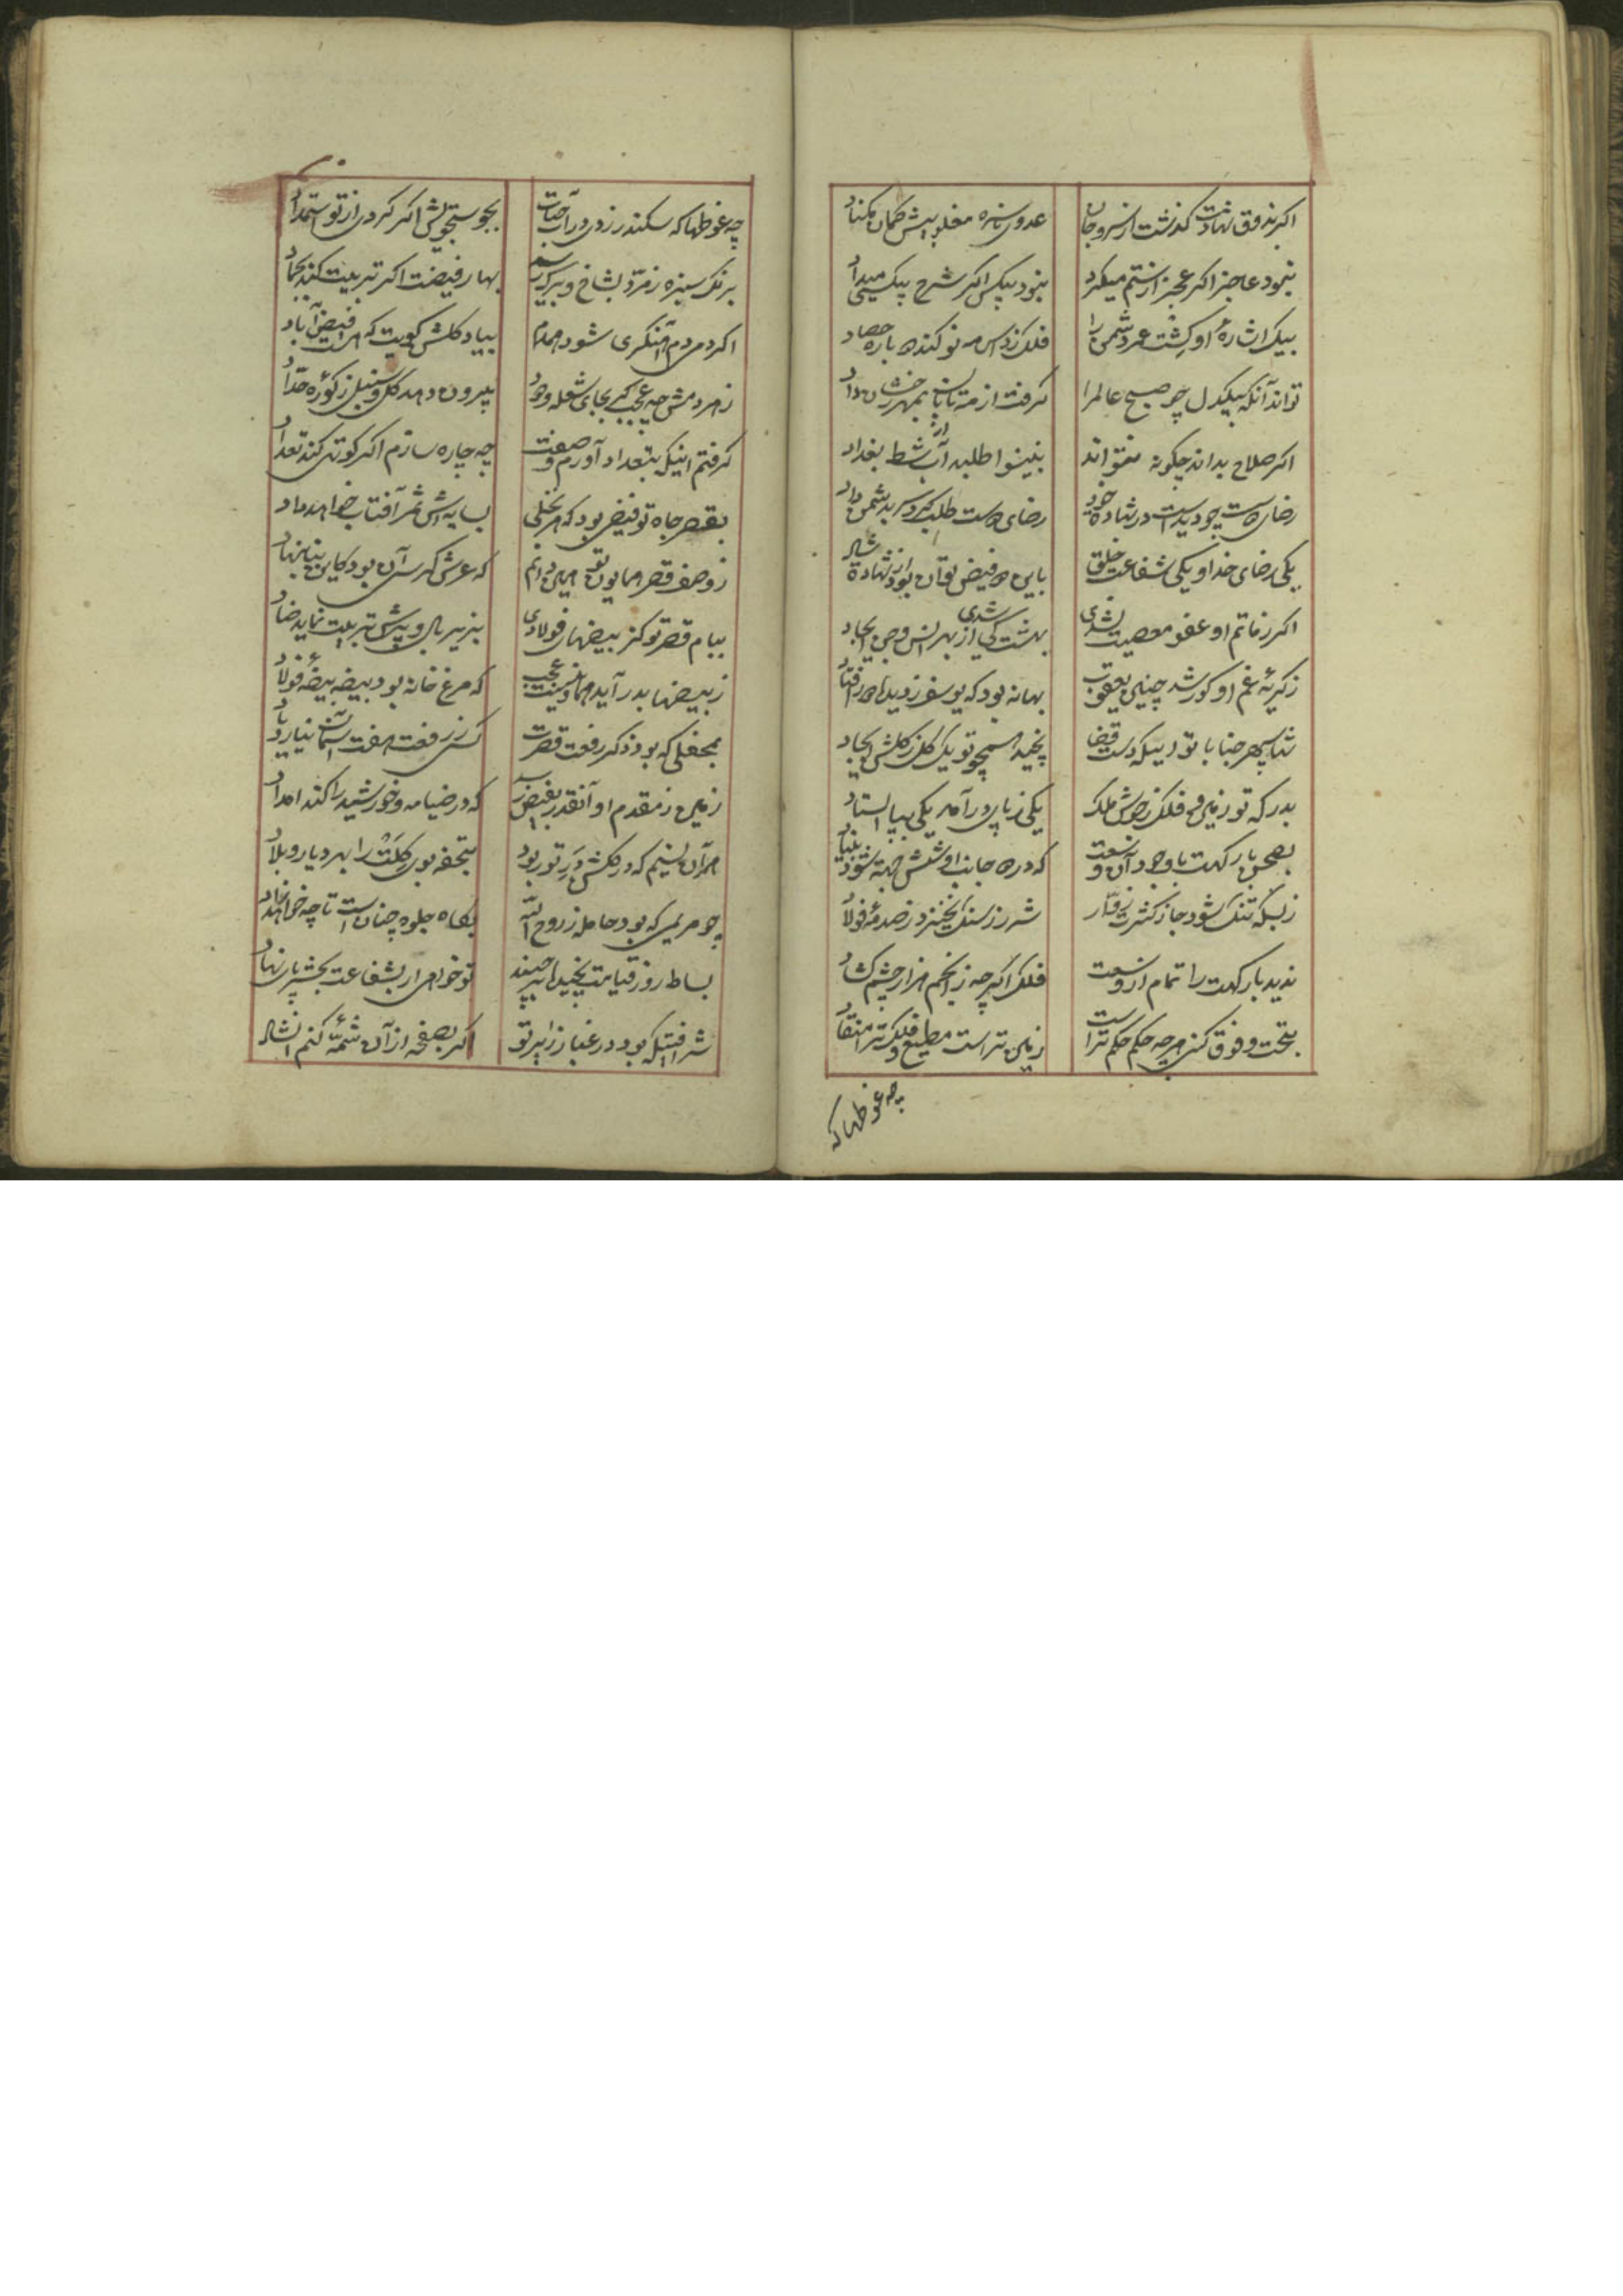 اکر بذوق شهادت کذشت از سر و جان عدوی بمکناد
نبود عاجز اکر عجز از ستم میکرد نبود بیکس اکر شرح بیکسی میداد
بیک اشارهٔ او کشت عمر دشمن را فلک ز داس مه نو کند
تواند آنکه بیکدل چو صبح عالم را کرفت از مه تابان بمهر رخشان داد
اکر صلاح بداند چکونه نتواند به بینوا طلبد آب از شط بغداد
رضای دوست چو دید است در شهادة خود رضای دوست طلب کرد سر بدشمن داد
یکی رضای خدا و یکی شفاعت خلق باین دو فیض توان بود از شهادة شاد
اکر نه خاتم او عفو معصیت نشدی بهشت کی شدی از بهر انس و جن ایجاد
ز کریهٔ غم او کور شد چنین یعقوب بهانه بود که یوسف ز دیده‌اش افتاد
شها سپهر جنابا توئیکه دست قضا نچیده همچو تو یک کل ز کلشن ایجاد
بدرکه تو زمین و فلک ز خوش ملک یکی ز پای در آمد یکی بپا استاد
بصحن بارکهت با وجود آن وسعت که در دو جانب او شش جهت شود بنیاد
ز بسکه تنک شود جا ز کثرت زوّار شرر ز سنک نخیزد ز صدمهٔ فولاد
ندید بارکهت را تمام از وسعت فلک اکر چه ز انجم هزار چشم کشاد
بتحت و فوق کنی هر چه حکم حکم تراست زمین تراست مطیع و فلک ترا منقاد
چه غوطها که
چه غوطها که سکندر زدی در آب حیات بجوستجویش اکر کردی از تو استمداد
برنک سبزه زمرّد بشاخ و برک رسد بهار فیضت اکر تربیت کند بجماد
اکر دمی دم آهنکری شود همدم بیاد کلشن کویت که هست فیض آباد
ز هر دمش چه عجب کی بجای شعله و دود بیرون دمد کل و سنبل ز کورهٔ حدّاد
کرفتم اینکه بتعداد آورم وصفت چه چاره سازم اکر کوتهی کند تعداد
بقصر جاه تو فیضی بود که هر نخلی بسایه‌اش ثمر آفتاب خواهد داد
ز وصف قصر همایون تو همین دانم که عرش کرسی آن بود کاین بنا بنهاد
ببام قصر تو کز بیضهای فولادی بزیر بال و پرش تربیت نماید خاد
ز بیضها بدر آید هما و نیست عجب که مرغ خانه بود بیضه بیضهٔ فولاد
بمحفلی که بود ذکر رفعت قصرت کس از رفعت هفت آسمان نیارد یاد
زمین ز مقدم او آنقدر بفیض رسد که در ضیا مه و خورشید را کند امداد
هر آن نسیم که در کلشن در تو بود بتحفه بوی کلت را بهر دیار و بلاد
چو مریمی که بود حامله ز روح الله بکاه جلوه چنان است تا چه خواهد زاد
بساط روز قیامت نچیده بر چیند تو خواهی ار بشفاعت بحشر پای نهاد
شرافتیکه بود در غبار زایر تو اکر بصفحه از آن شمّهٔ کنم انشاد